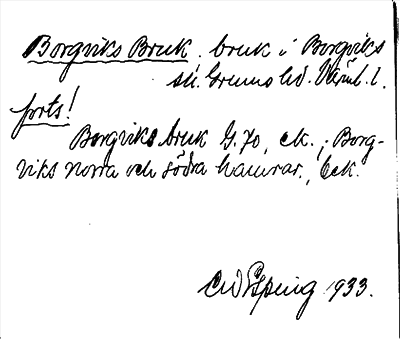 Borgviks Bruk, bruk i Borgviks
sn. Grums hd. Värml. l.
forts!
Borgviks bruk G. 70, ek.; Borg-
viks norra och södra hamrar, Eek.
1933.